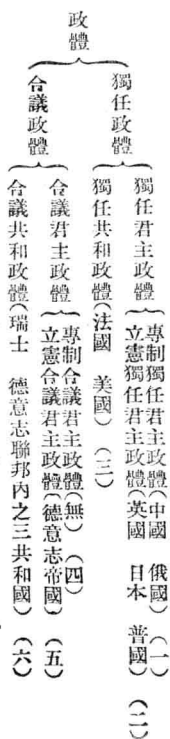 政體
獨任政體
獨任君主政體
專制獨任君主政體(中國　俄國)(一)
立憲獨任君主政體(英國　日本　普國)(二)
獨任共和政體(法國　美國)(三)
合議政體
合議君主政體
專制合議君主政體(無)(四)
立憲合議君主政體(德意志帝國)(五)
合議共和政體(瑞士　德意志聯邦內之三共和國)(六)